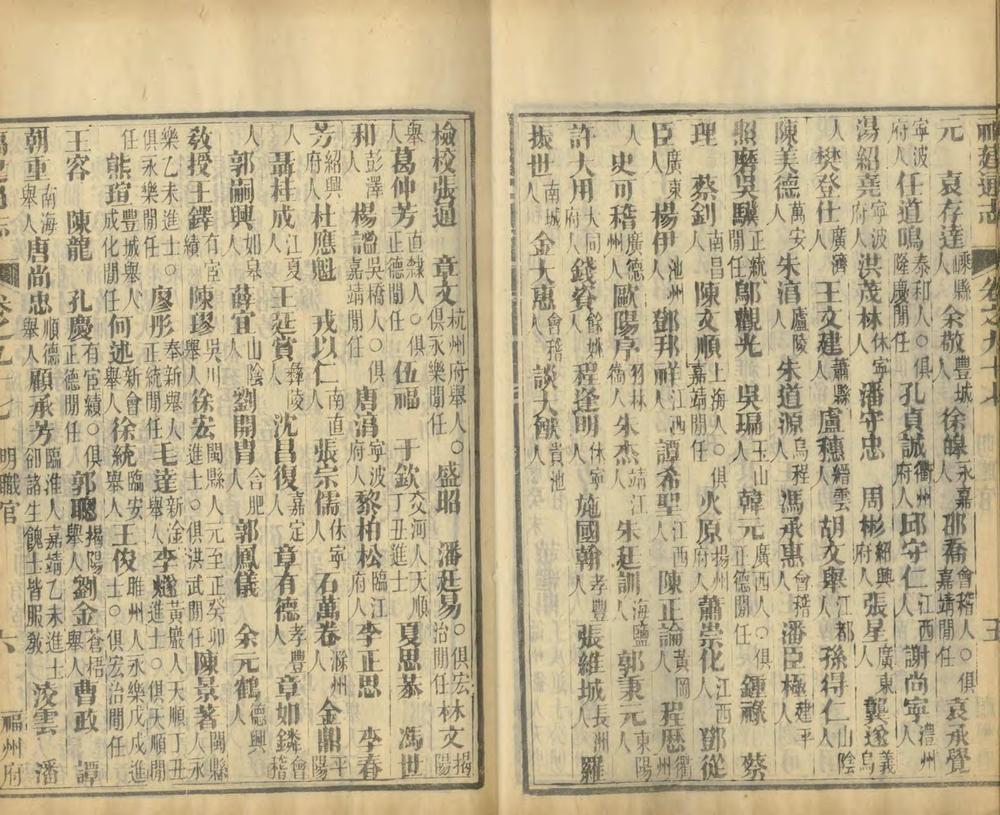 福建通志 卷之九十七
元 袁存達嵊縣人 余敬豐城人 徐皞永嘉人 邵喬會稽人○俱嘉靖閒任 袁承覺
寧波府人 任道鳴泰和人○俱隆慶閒任 孔貞誠衢州府人 邱守仁江西人 謝尚寧澧州人
湯紹堯寧波府人 洪茂林休寧人 潘守忠 周彬紹興府人 張星廣東人 龔遂義烏
人 樊登仕廣濟人 王文建蕭縣人 盧穗縉雲人 胡文舉江都人 孫得仁山陰人
陳美德萬安人 朱涓廬陵人 朱道源烏程人 馮承惠會稽人 潘臣極建平人
照磨吳驥正統閒任 鄔觀光 吳瑞玉山人 韓元廣西人○俱正德閒任 鍾祿江西人 蔡
理 蔡釗南昌人 陳文順上海人○俱嘉靖閒任 火原揚州府人 蕭崇化人 鄧從
臣廣東人 楊伊池州人 鄧邦祥江西人 譚希聖江西人 陳正論黃岡人 程歷衢州
人 史可稽廣德州人 歐陽序羽林衞人 朱杰靖江人 朱廷訓海鹽人 郭秉元東陽人
許大用大同府人 錢眷餘姚人 程逢明休寧人 施國翰孝豐人 張維城長洲人 羅
振世南城人 金大惠會稽人 談大僉貴池人
檢校張通 章文杭州府舉人○俱永樂閒任 盛昭 潘廷易○俱宏治閒任 林文揭陽
舉人 葛仲芳直隸人○俱正德閒任 伍福 于欽交河人天順丁丑進士 夏思恭 馮世
和彭澤人 楊謐吳橋人○俱嘉靖閒任 唐濤寧波府人 黎柏松臨江府人 李正思 李春
芳紹興府人 杜應魁 戎以仁南直人 張宗儒休寧人 石萬卷滁州人 金鼎平陽
人 聶桂成江夏人 王廷賞彝陵人 沈昌復嘉定人 章有德孝豐人 章如鏻會稽
人 郭嗣興如皋人 薛宜山陰人 劉開冑合肥人 郭鳳儀 余元鶴德興人
敎授王鐸有宦績 陳璆吳川舉人 徐宏閩縣人元至正癸卯進士○俱洪武閒任 陳景著閩縣人永
樂乙未進士○俱永樂閒任 廖彤奉新舉人正統閒任 毛達新淦舉人 李燧黃巖人天順丁丑進士○俱天順閒
任 熊瑄豐城舉人成化閒任 何述新會舉人 徐統臨安舉人 王俊睢州人永樂戊戌進士○俱宏治閒任
王容 陳龍 孔慶有宦績○俱正德閒任 郭聰揭陽舉人 劉金蒼梧舉人 曹政 譚
朝重南海舉人 唐尚忠順德舉人 顧承芳臨淮人嘉靖乙未進士卻諸生餽士皆服敎 淩雲 潘
卷之九十七 明職官 六 福州府